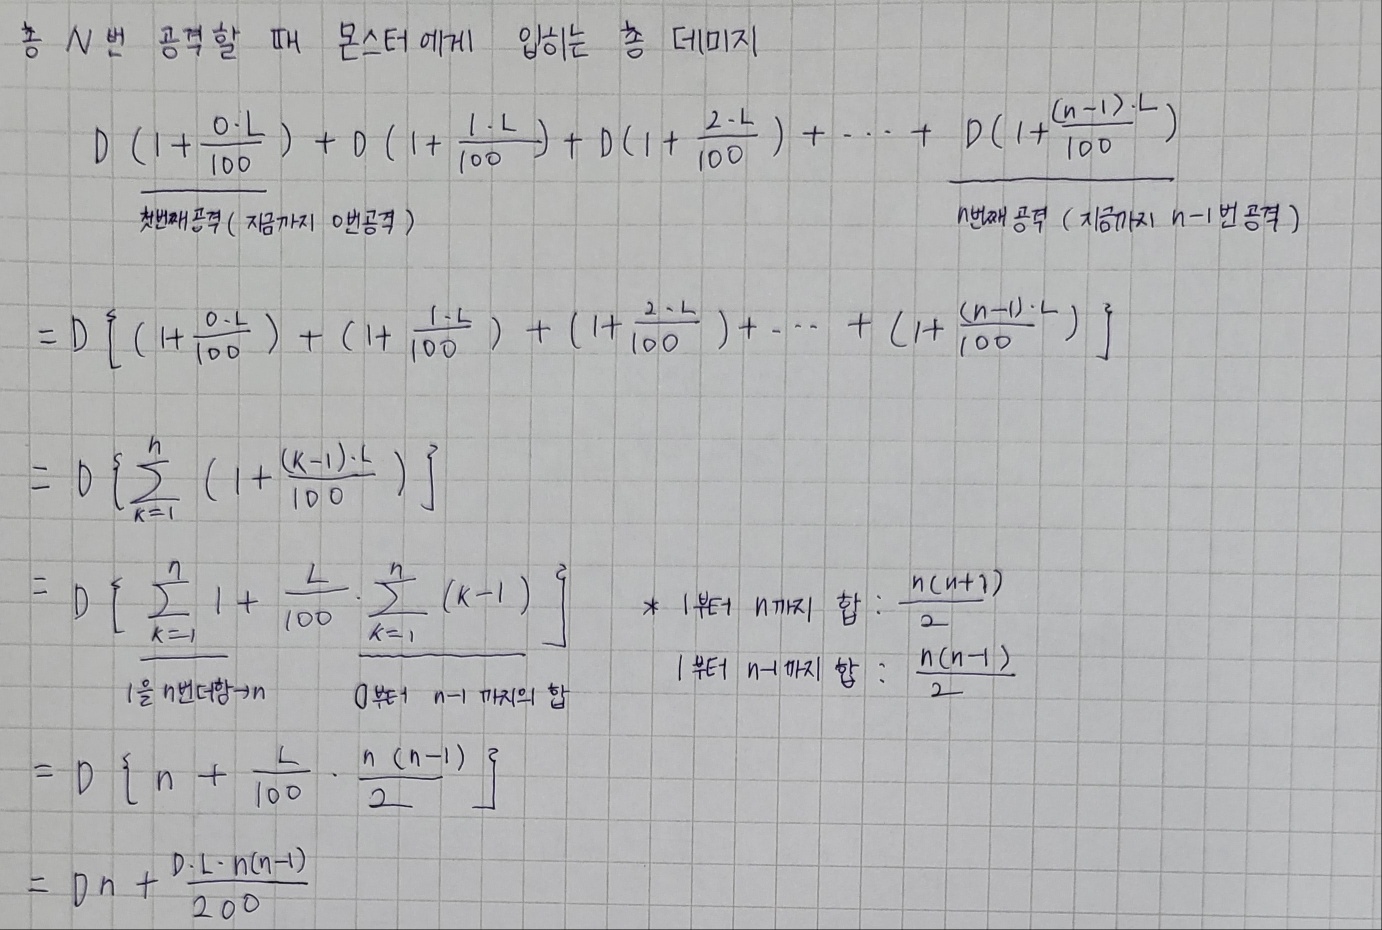 총 N번 공격할 때 몬스터에게 입히는 총 데미지
D(1+0·L/100)+D(1+1·L/100)+D(1+2·L/100)+···+D(1+(n-1)·L/100)
첫번째공격(지금까지 0번공격) n번째 공격(지금까지 n-1번 공격)
=D[(1+0·L/100)+(1+1·L/100)+(1+2·L/100)+···+(1+(n-1)·L/100)]
=D[∑_{k=1}^{n}(1+(k-1)·L/100)]
=D[∑_{k=1}^{n}1+L/100·∑_{k=1}^{n}(k-1)] * 1부터 n까지 합: n(n+1)/2
1부터 n-1까지 합: n(n-1)/2
1을 n번더함→n 0부터 n-1까지의 합
=D[n+L/100·n(n-1)/2]
=Dn+D·L·n(n-1)/200